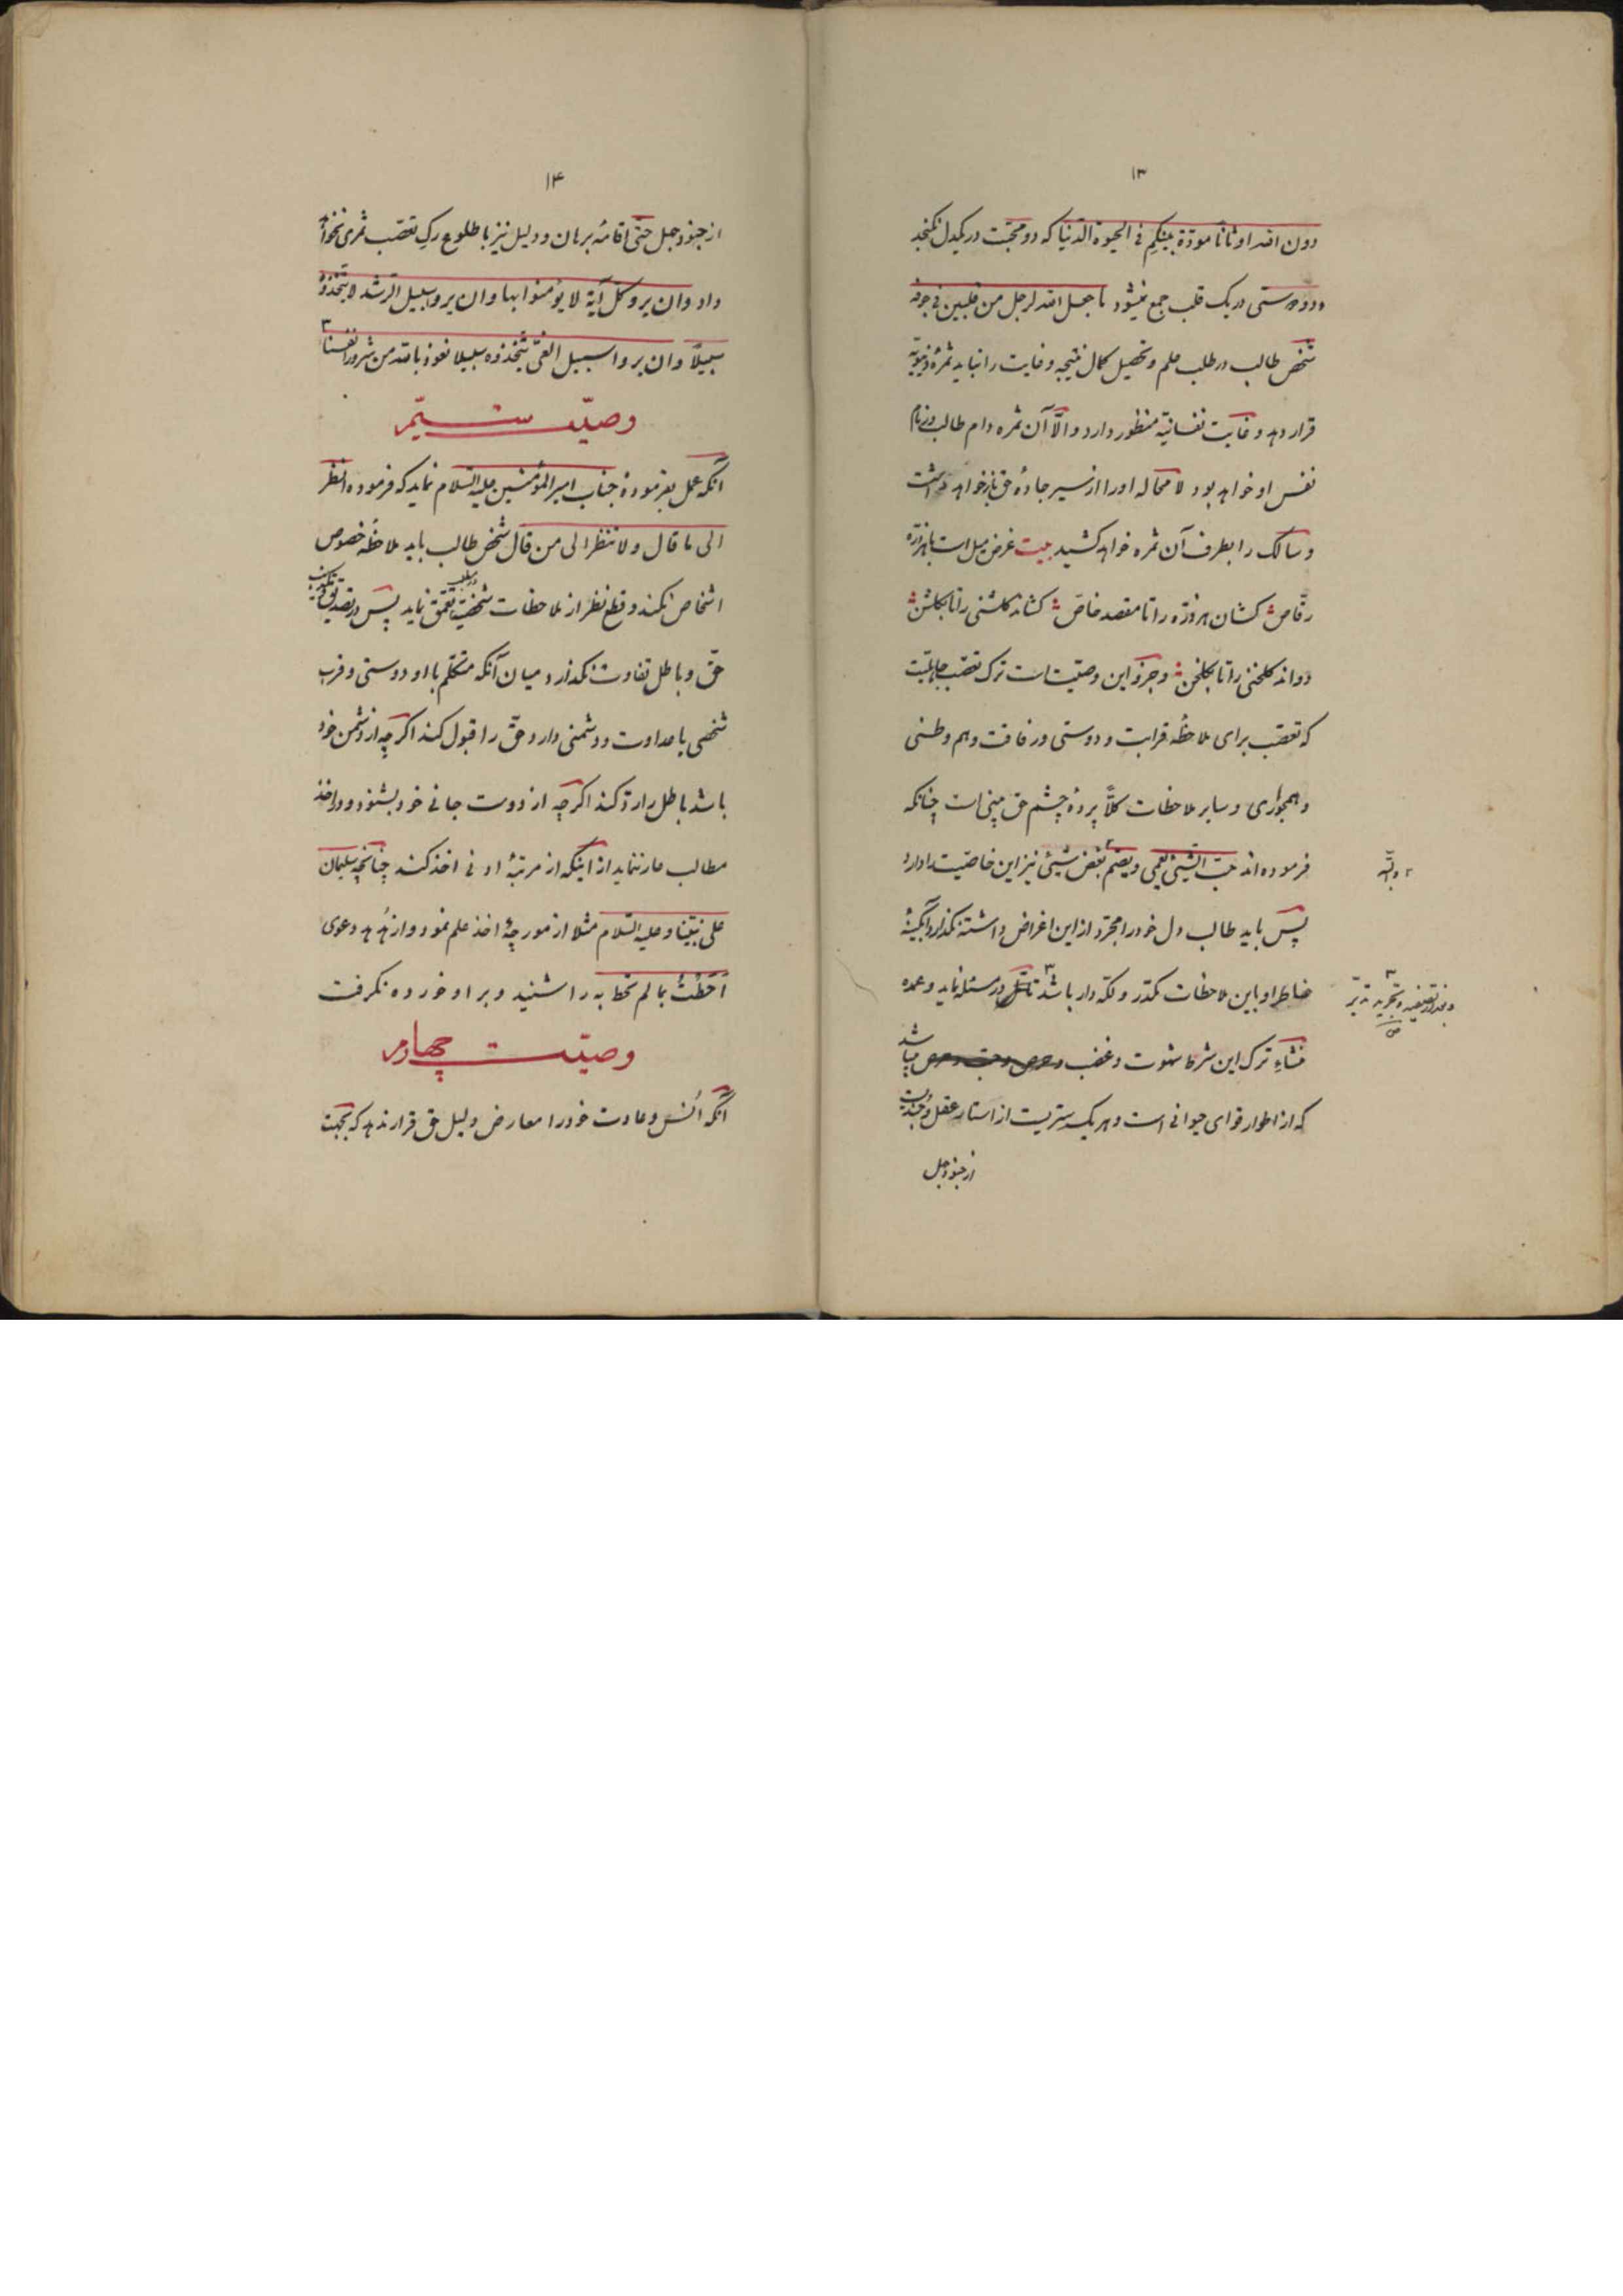 ۱۳
دون الله اوثانا مودّة بینکم فی الحیوة الدّنیا که دو محبّت در یکدل نکنجد
و دو دوستی در یک قلب جمع نمیشود ما جعل الله لرجل من قلبین فی جوفه
شخص طالب در طلب علم و تحصیل کمال نتیجه و غایت را نباید ثمرهٔ دنیویّه
قرار دهد و غایت نفسانیّه منظور دارد و الّا آن ثمره دام طالب و زمام
نفس او خواهد بود لا محاله او را از سیر جادهٔ حق باز خواهد داشت
و سالک را بطرف آن ثمره خواهد کشید بیت غرض میل است با هر ذرّه
رقّاص کشان هر ذرّه را تا مقصد خاصّ کشاند کلشنی را تا بکلشن
دواند کلخنی را تا بکلخن و جزو این وصیّت است ترک تعصّب جاهلیّت
که تعصّب برای ملاحظهٔ قرابت و دوستی و رفاقت و هم وطنی
و همجواری و سایر ملاحظات کلّاً پردهٔ چشم حق بینی است چنانکه
فرموده اند حبّ الشّیئ یعمی و یصمّ بغض شیئ نیز این خاصیّت را دارد
پس باید طالب دل خود را مجرّد از این اغراض داشته نکذارد آبکینهٔ
خاطر او باین ملاحظات مکدّر و لکّه دار باشد تا تأمّل در مسئله نماید و عمده
و بعد از تصفیه و تجرید تدبّر
منشاء ترک این شرط شهوت و غضب میباشد
که از اطوار قوای حیوانی است و هر یک ستریست از استار عقل و جندیست
از جنود جهل
۱۴
از جنود جهل حتّی اقامهٔ برهان و دلیل نیز با طلوع رک تعصّب ثمری نخواهد
داد و ان یروا کلّ آیة لا یؤمنوا بها و ان یروا سبیل الرّشد لا یتّخذوه
سبیلاً و ان یروا سبیل الغیّ یتّخذوه سبیلا نعوذ بالله من شرور انفسنا
وصیّت سیّم
آنکه عمل بفرمودهٔ جناب امیر المؤمنین علیه السّلام نماید که فرموده انظر
الی ما قال و لا تنظر الی من قال شخص طالب باید ملاحظهٔ خصوص
اشخاص نکند و قطع نظر از ملاحظات شخصیّت در مطلب تعمّق نماید پس در تصدیق و تکذیب
حقّ و باطل تفاوت نکذارد میان آنکه متکلّم با او دوستی و قرب
شخصی یا عداوت و دشمنی دارد حقّ را قبول کند اکر چه از دشمن خود
باشد باطل را ردّ کند اکر چه از دوست جانی خود بشنود و در اخذ
مطالب عار ننماید از اینکه از مرتبهٔ ادنی اخذ کند چنانچه سلیمان
علی نبیّنا و علیه السّلام مثلا از مورچهٔ اخذ علم نمود و از هُدهُد دعوی
اَحَطْتُ بما لم تحط به را شنید و بر او خورده نکرفت
وصیّت چهارم
آنکه اُنس و عادت خود را معارض دلیل حق قرار ندهد که بجهت